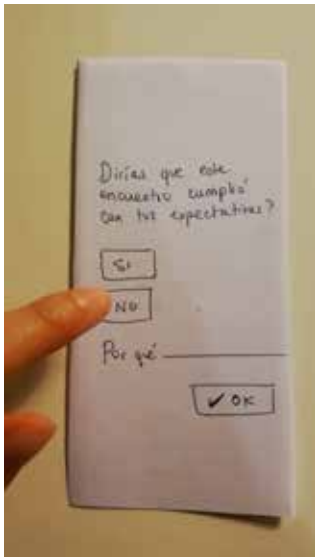 Dirías que este
encuentro cumplió
con tus expectativas?
SI
NO
Por qué
✔ OK